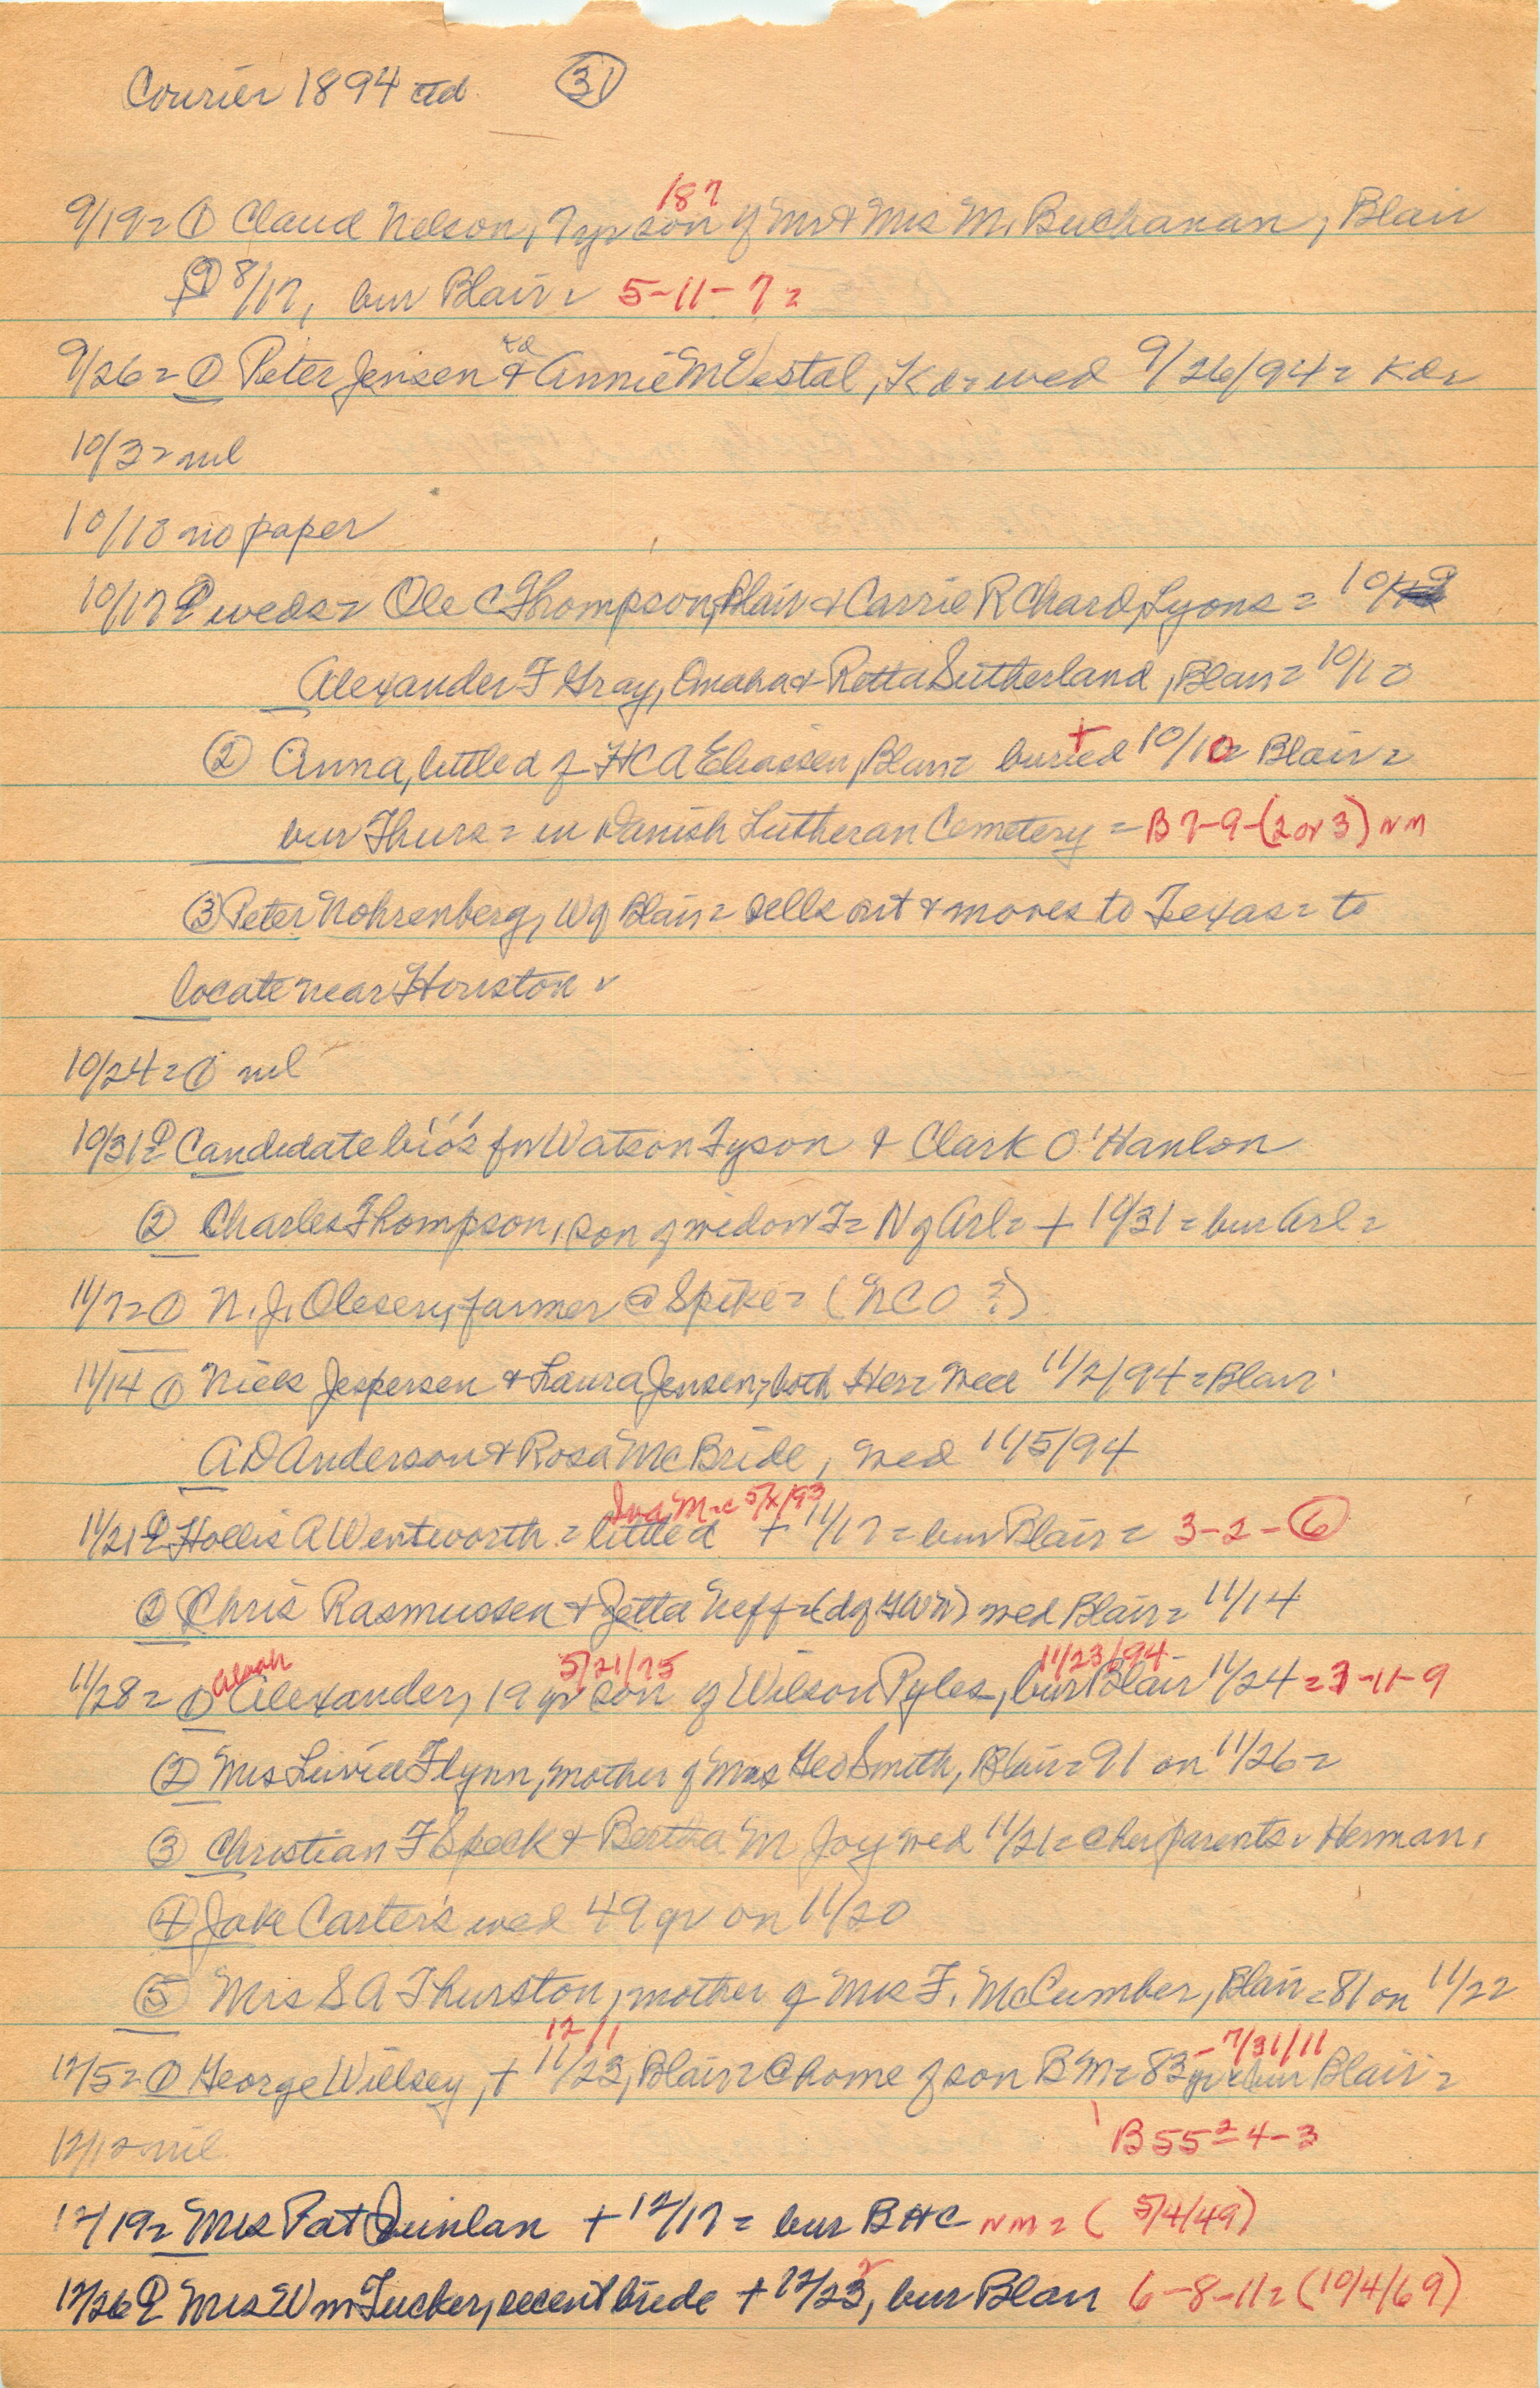 Courier 1894 ctd (31)
187
9/19= ① Claud Nelson, 7 yr son of Mr & Mrs M. Buchanan, Blair
8/17, bur Blair = 5-11-7=
9/26= ① Peter Jensen & Annie M Vestal, Kd= wed 9/26/94= Kd=
10/3= nil
10/10 no paper
10/17 ① weds= Ole C Thompson, Blair & Carrie R Chard, Lyons = 10/
Alexander F Gray, Omaha & Retta Sutherland, Blair= 10/10
② Anna, little d of HCA Eliasen, Blair= buried 10/10= Blair=
bur Thurs= in Danish Lutheran Cemetery = B 7-9-(2 or 3) NM
③ Peter Nohrenberg, W of Blair= sells out & moves to Texas= to
locate near Houston
10/24= ① nil
10/31 ① Candidate bio's for Watson Tyson & Clark O'Hanlon
② Charles Thompson, son of widow T= N of Arl= + 10/31= bur Arl=
11/7= ① N. J. Olesen, farmer @ Spike= (NCO ?)
11/14 ① Niels Jespersen & Laura Jensen, both Her= wed 11/2/94= Blair
A D Anderson & Rosa McBride, wed 11/5/94
Iva M=c 5/x/93
11/21 ① Hollis A Wentworth = little d + 11/17= bur Blair= 3-2-⑥
② Chris Rasmussen & Jetta Neff= (d of GWN) wed Blair= 11/14
Alvah 5/21/75 11/23/94
11/28= ① Alexander, 19 yr son of Wilson Pyles, bur Blair 11/24 = 3-11-9
② Mrs Flynn, mother of Mrs Geo Smith, Blair= 91 on 11/26=
③ Christian F Speck & Bertha M Joy wed 11/21= @ her parents= Herman.
④ Jake Carter's wed 49 yr on 11/20
⑤ Mrs S A Thurston, mother of Mrs F. McCumber, Blair= 81 on 11/22
12/1 - 7/31/11
12/5= ① George Willsey, + 11/23, Blair= @ home of son BM= 83 yr= bur Blair=
12/12 nil B 55= 4-3
12/19= Mrs Pat Quinlan + 12/17= bur BHC NM= (5/4/49)
12/26 ① Mrs Wm Tucker, recent bride + 12/23, bur Blair 6-8-11= (10/4/69)